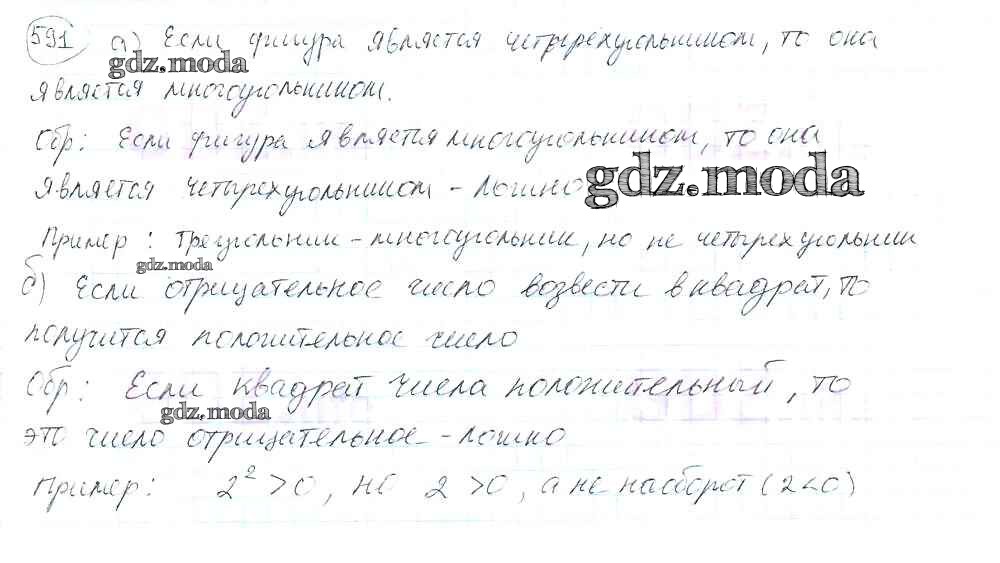 591 а) Если фигура является четырехугольником, то она
gdz.moda
является многоугольником.
Обр: Если фигура является многоугольником, то она
является четырехугольником - ложно
gdz.moda
Пример: треугольник - многоугольник, но не четырехугольник
gdz.moda
б) Если отрицательное число возвести в квадрат, то
получится положительное число
Обр: Если квадрат числа положительный, то
gdz.moda
это число отрицательное - ложно
Пример: 2² > 0, но 2 > 0, а не наоборот (2 < 0)